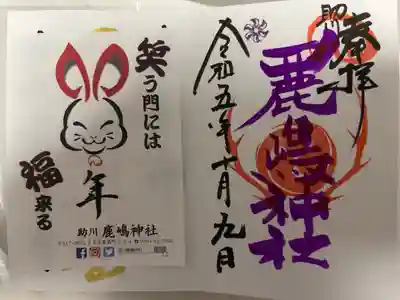 奉拝
助川
鹿嶋神社
令和五年十月九日
笑う門には
福来る
年
助川 鹿嶋神社